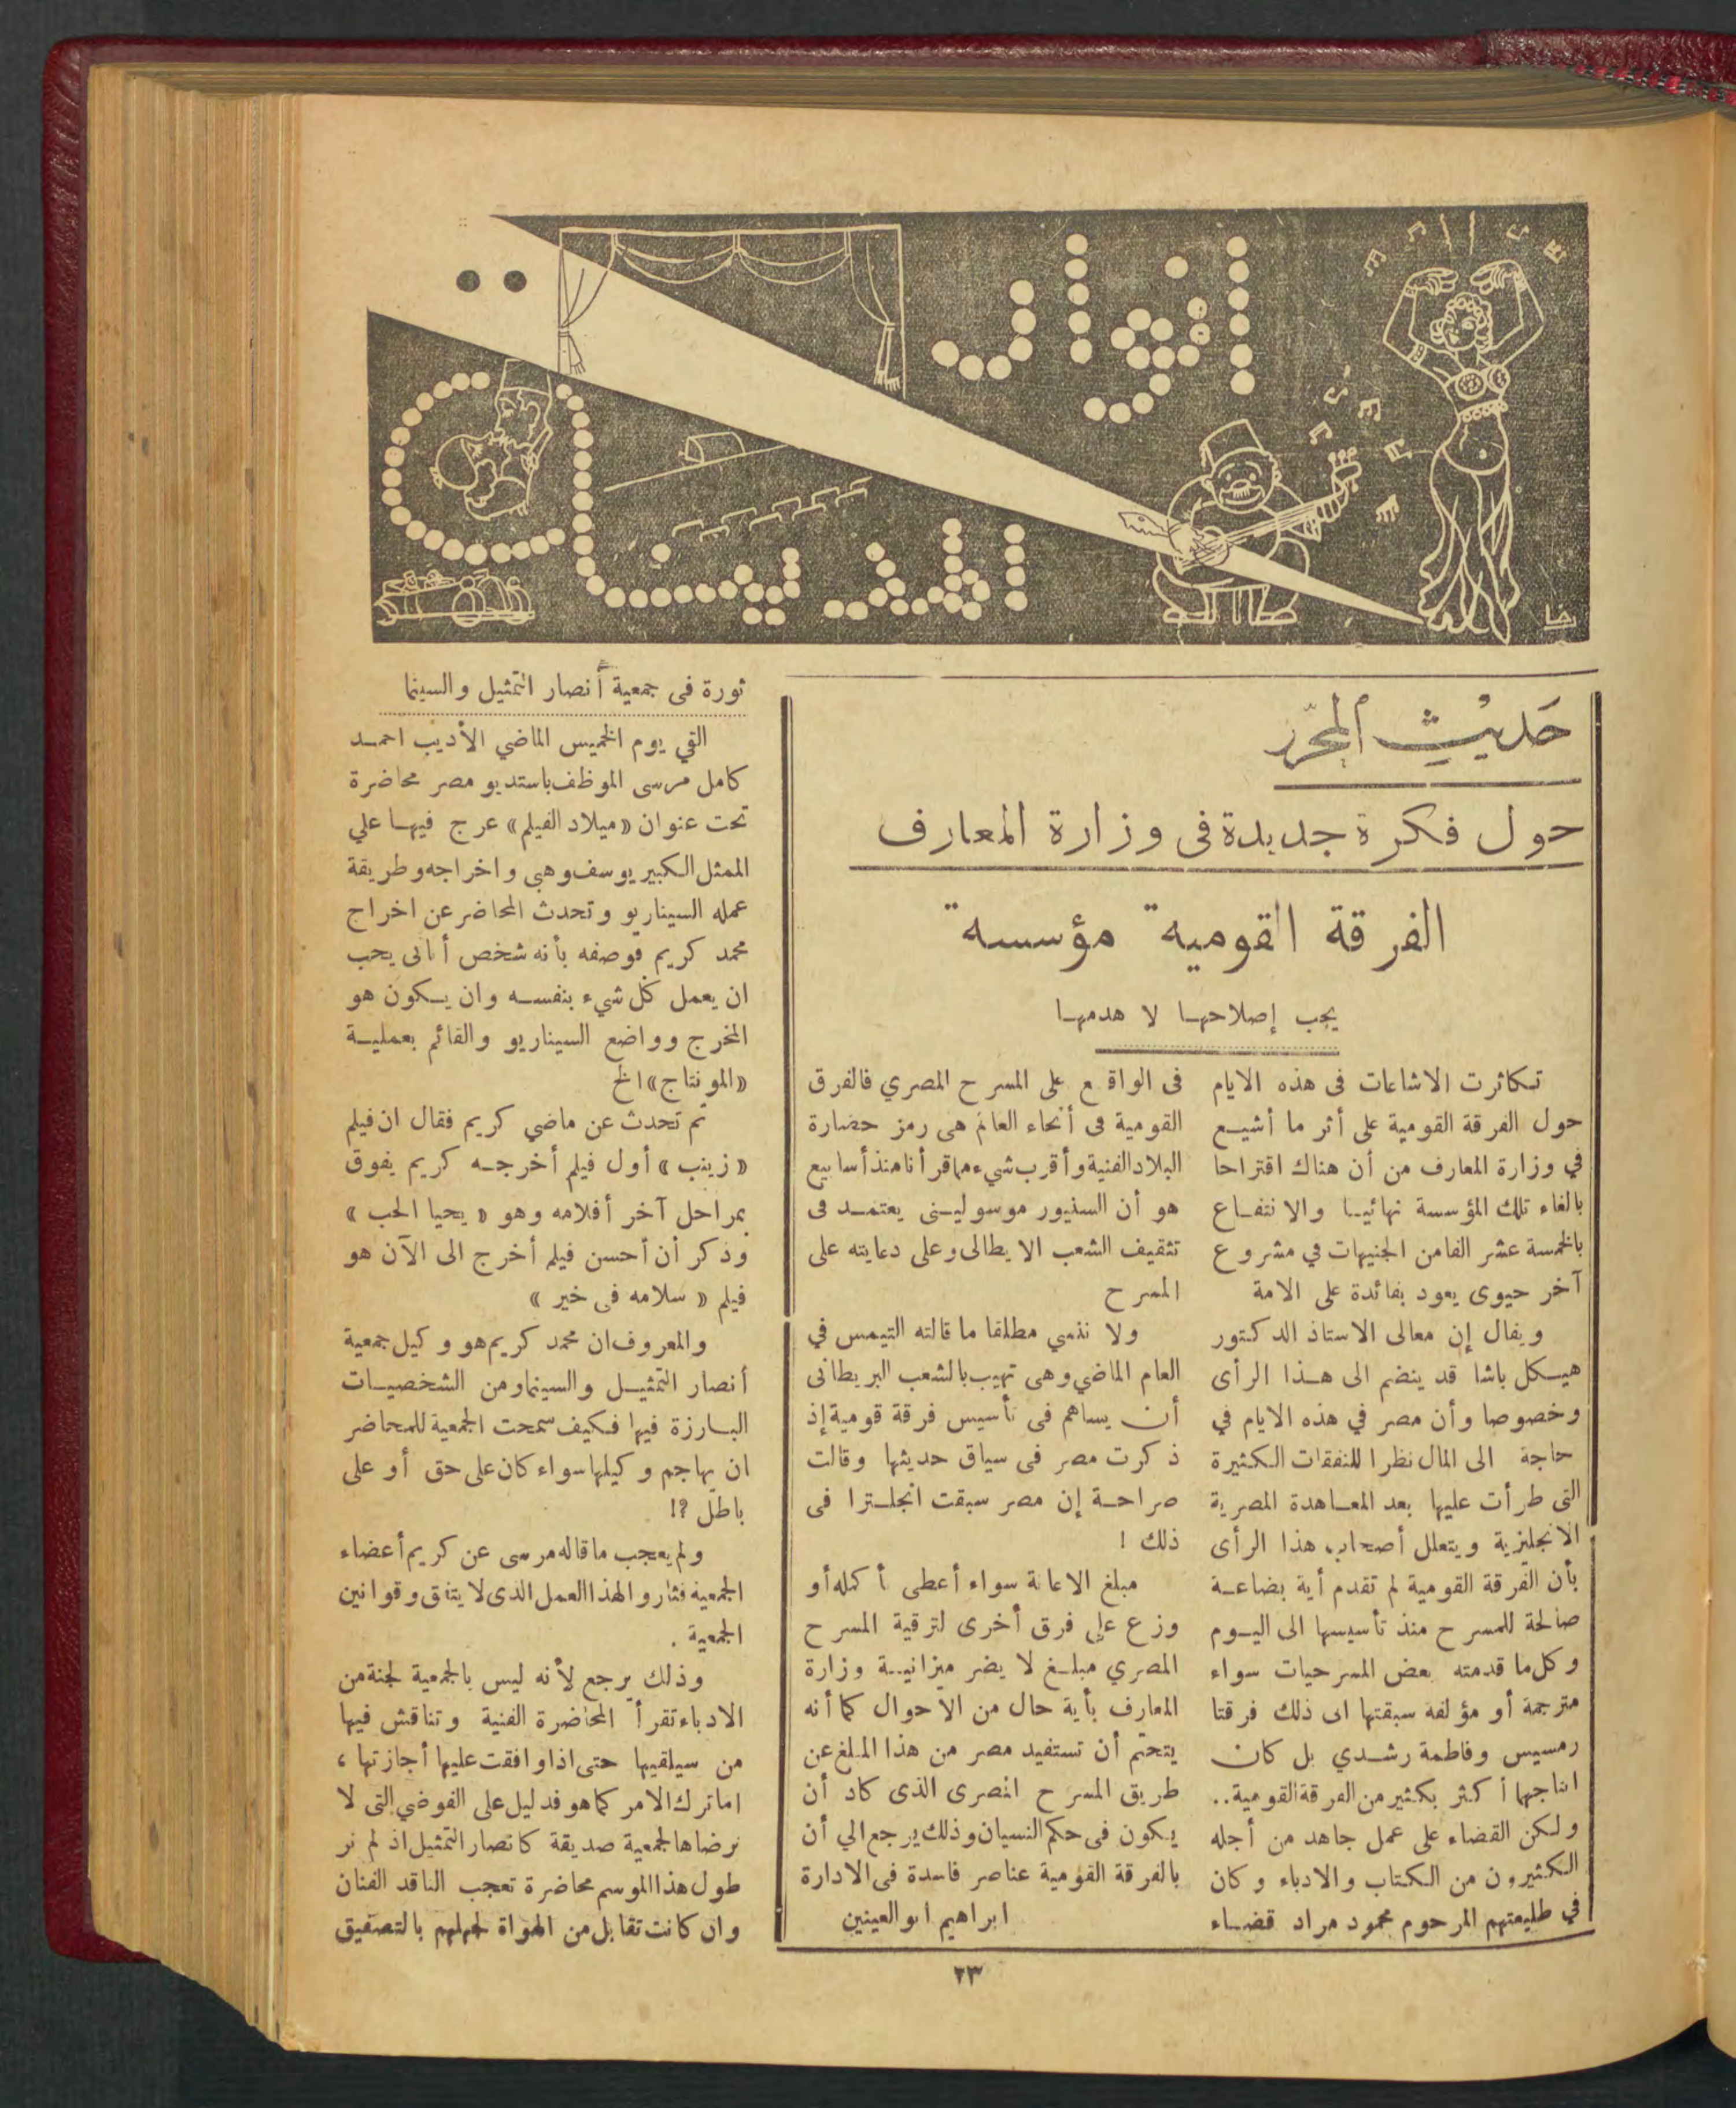 انوار
المدينة
..
حَديْث المحرّر
حول فكرة جديدة فى وزارة المعارف
الفرقة القومية مؤسسة
يجب إصلاحهـا لا هدمهـا
تـكاثرت الاشاعات فى هذه الايام
حول الفرقة القومية على أثر ما أشيـع
في وزارة المعارف من أن هناك اقتراحا
بالغاء تلك المؤسسة نهائيـا والانتفـاع
بالخمسة عشر الفا من الجنيهات في مشروع
آخر حيوى يعود بفائدة على الامة
ويقال إن معالى الاستاذ الدكتور
هيـكل باشا قد ينضم الى هـذا الرأى
وخصوصا وأن مصر في هذه الايام في
حاجة الى المال نظرا للنفقات الـكثيرة
التى طرأت عليها بعد المعـاهدة المصرية
الانجليزية ويتعلل أصحاب هذا الرأى
بأن الفرقة القومية لم تقدم أية بضاعـة
صالحة للمسرح منذ تأسيسها الى اليـوم
وكل ما قدمته بعض المسرحيات سواء
مترجمة أو مؤلفة سبقتها الى ذلك فرقتا
رمسيس وفاطمة رشـدي بل كان
انتاجها أكثر بكثير من الفرقة القومية..
ولـكن القضاء على عمل جاهد من أجله
الـكثيرون من الـكتاب والادباء وكان
في طليعتهم المرحوم محمود مراد قضـاء
فى الواقع على المسرح المصري فالفرق
القومية فى أنحاء العالم هى رمز حضارة
البلاد الفنية وأقرب شيء مما قرأنا منذ أسابيع
هو أن السنيور موسوليـنى يعتمـد فى
تثقيف الشعب الايطالى وعلى دعايته على
المسرح
ولا ننسي مطلقا ما قالته التيمس في
العام الماضي وهى تهيب بالشعب البريطانى
أن يساهم فى تأسيس فرقة قومية إذ
ذكرت مصر فى سياق حديثها وقالت
صراحـة إن مصر سبقت انجلـترا فى
ذلك !
مبلغ الاعانة سواء أعطى أكمله أو
وزع على فرق أخرى لترقية المسرح
المصري مبلـغ لا يضر ميزانيـة وزارة
المعارف بأية حال من الاحوال كما أنه
يتحتم أن تستفيد مصر من هذا المبلغ عن
طريق المسرح المصرى الذى كاد أن
يـكون فى حكم النسيان وذلك يرجع الي أن
بالفرقة القومية عناصر فاسدة فى الادارة
ابراهيم ابو العينين
ثورة فى جمعية أنصار التمثيل والسينما
القي يوم الخميس الماضي الأديب احمـد
كامل مرسى الموظف باستديو مصر محاضرة
تحت عنوان «ميلاد الفيلم» عرج فيهـا علي
الممثل الـكبير يوسف وهبى واخراجه وطريقة
عمله السيناريو وتحدث المحاضر عن اخراج
محمد كريم فوصفه بأنه شخص أنانى يحب
ان يعمل كل شيء بنفسـه وان يـكون هو
المخرج وواضع السيناريو والقائم بعمليـة
«المونتاج» الخ
ثم تحدث عن ماضي كريم فقال ان فيلم
«زينب» أول فيلم أخرجـه كريم يفوق
بمراحل آخر أفلامه وهو «يحيا الحب»
وذكر أن أحسن فيلم أخرج الى الآن هو
فيلم «سلامه فى خير»
والمعروف ان محمد كريم هو وكيل جمعية
أنصار التمثيـل والسينما ومن الشخصيـات
البـارزة فيها فـكيف سمحت الجمعية للمحاضر
ان يهاجم وكيلها سواء كان على حق أو على
باطل ؟!
ولم يعجب ما قاله مرسى عن كريم أعضاء
الجمعيه فثاروا لهذا العمل الذى لا يتفق وقوانين
الجمعية .
وذلك يرجع لأنه ليس بالجمعية لجنة من
الادباء تقرأ المحاضرة الفنية وتناقش فيها
من سيلقيها حتى اذا وافقت عليها أجازتها ،
اما ترك الامر كما هو فدليل على الفوضي التى لا
نرضاها لجمعية صديقة كانصار التمثيل اذ لم نر
طول هذا الموسم محاضرة تعجب الناقد الفنان
وان كانت تقابل من الهواة لجهلهم بالتصفيق
٢٣